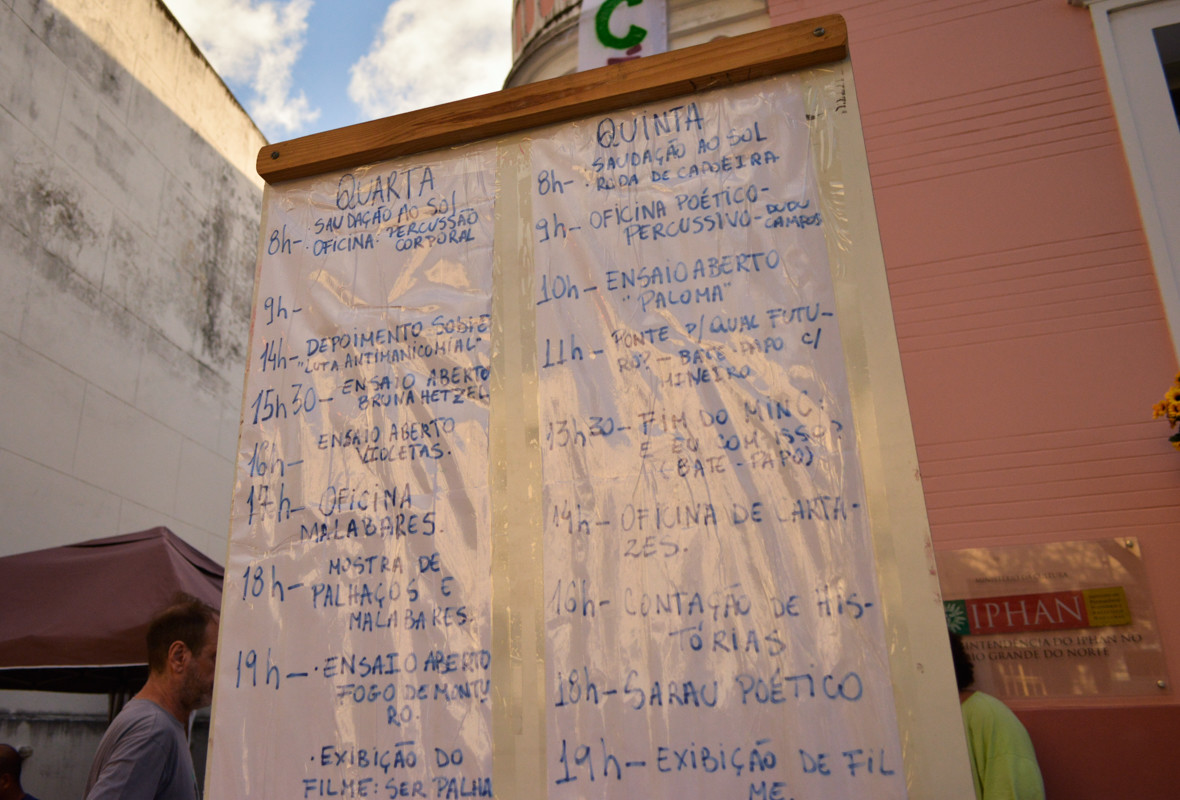 Ç
QUARTA
SAUDAÇÃO AO SOL
8h- · OFICINA: PERCUSSÃO
CORPORAL
9h-
14h- DEPOIMENTO SOBRE
"LUTA ANTIMANICOMIAL"
15h30- ENSAIO ABERTO
BRUNA HETZEL
ENSAIO ABERTO
16h- VIOLETAS.
17h- OFICINA
MALABARES.
18h- MOSTRA DE
PALHAÇOS E
MALABARES.
19h- · ENSAIO ABERTO
FOGO DE MONTU
RO.
· EXIBIÇÃO DO
FILME: SER PALHA
QUINTA
SAUDAÇÃO AO SOL
8h- · RODA DE CAPOEIRA
9h- OFICINA POÉTICO-
PERCUSSIVO - DUDU
CAMPOS
10h- ENSAIO ABERTO
"PALOMA"
11h- PONTE P/ QUAL FUTU-
RO? - BATE-PAPO C/
MINEIRO
13h30- FIM DO MINC:
E EU COM ISSO?
(BATE-PAPO)
14h- OFICINA DE CARTA-
ZES.
16h- CONTAÇÃO DE HIS-
TÓRIAS
18h- SARAU POÉTICO
19h- EXIBIÇÃO DE FIL
ME.
IPHAN
INTENDÊNCIA DO IPHAN NO
RIO GRANDE DO NORTE